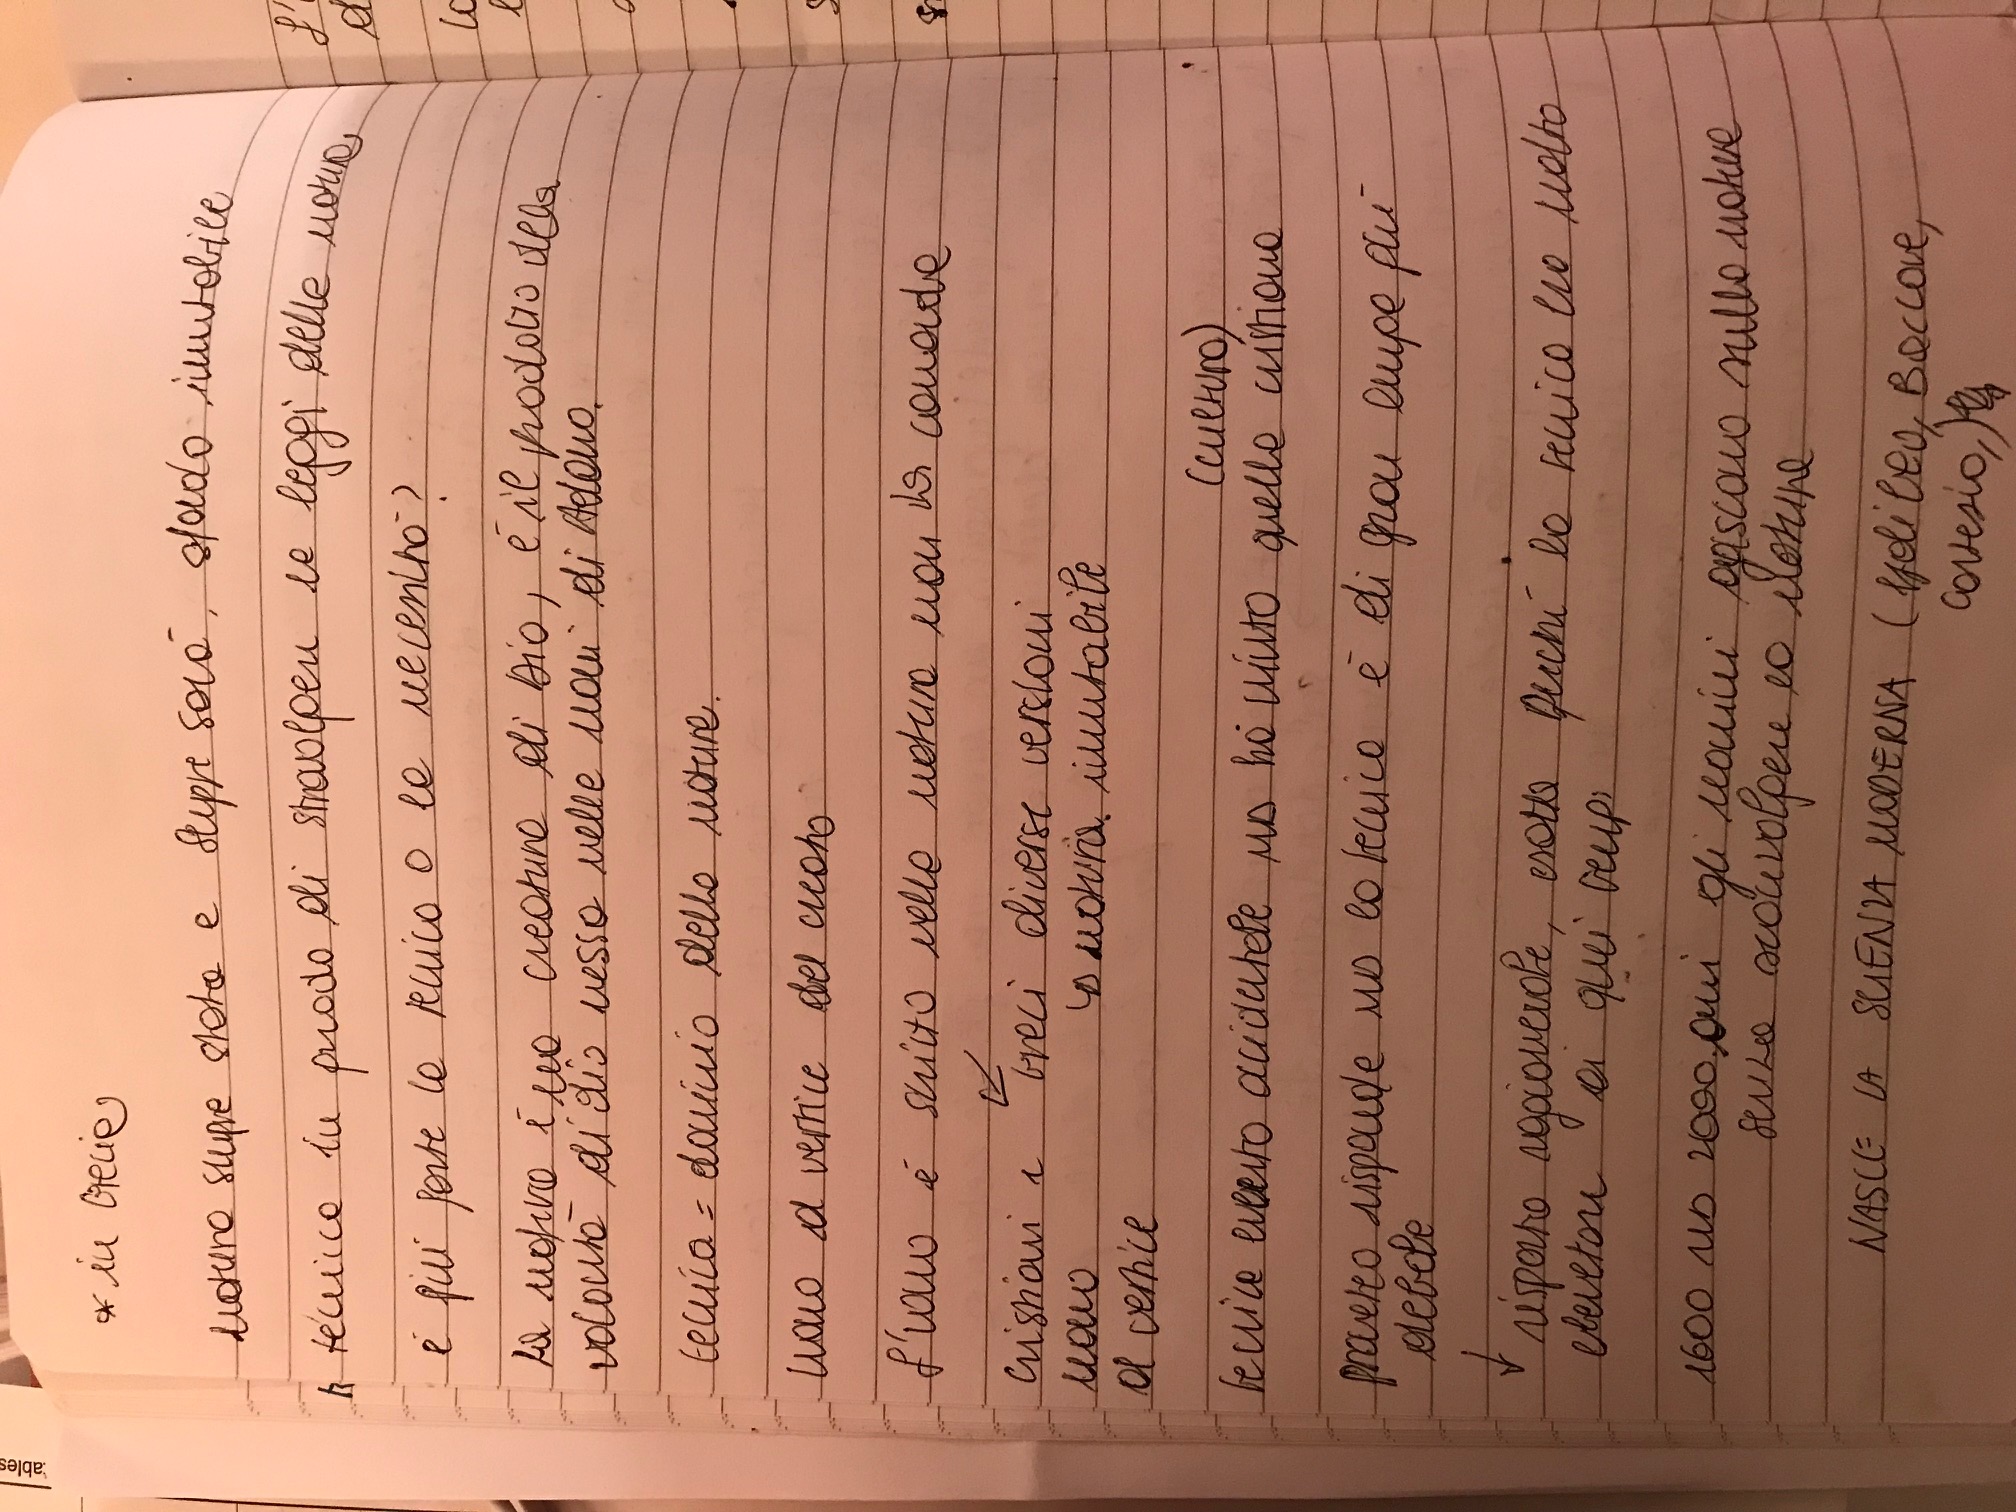 * in Grecia
natura sempre stata e sempre sarà, sfondo immutabile
la tecnica in grado di stravolgere le leggi della natura,
è più forte la tecnica o la necessità?
La natura è una creatura di Dio, è il prodotto della
volontà di Dio messa nelle mani di Adamo.
tecnica = dominio della natura.
uomo al vertice del creato
L'uomo è scritto nella natura non la comanda
cristiani e greci diverse versioni
uomo
al vertice
↳ natura immutabile
(cultura)
tecnica evento occidentale ma ha vinto quella cristiana
prometeo risponde ma la tecnica è di gran lunga più
debole
↓ risposta ragionevole, esatta perché la tecnica era molto
elementare ai quei temp.
1600 ma 2000 anni gli uomini agiscono sulla natura
senza sconvolgere la natura
NASCE LA SCIENZA MODERNA (Galileo, Bacone,
Cartesio,)
ables